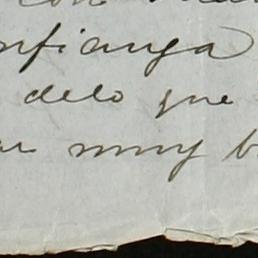 con
nfianza
delo que
muy b